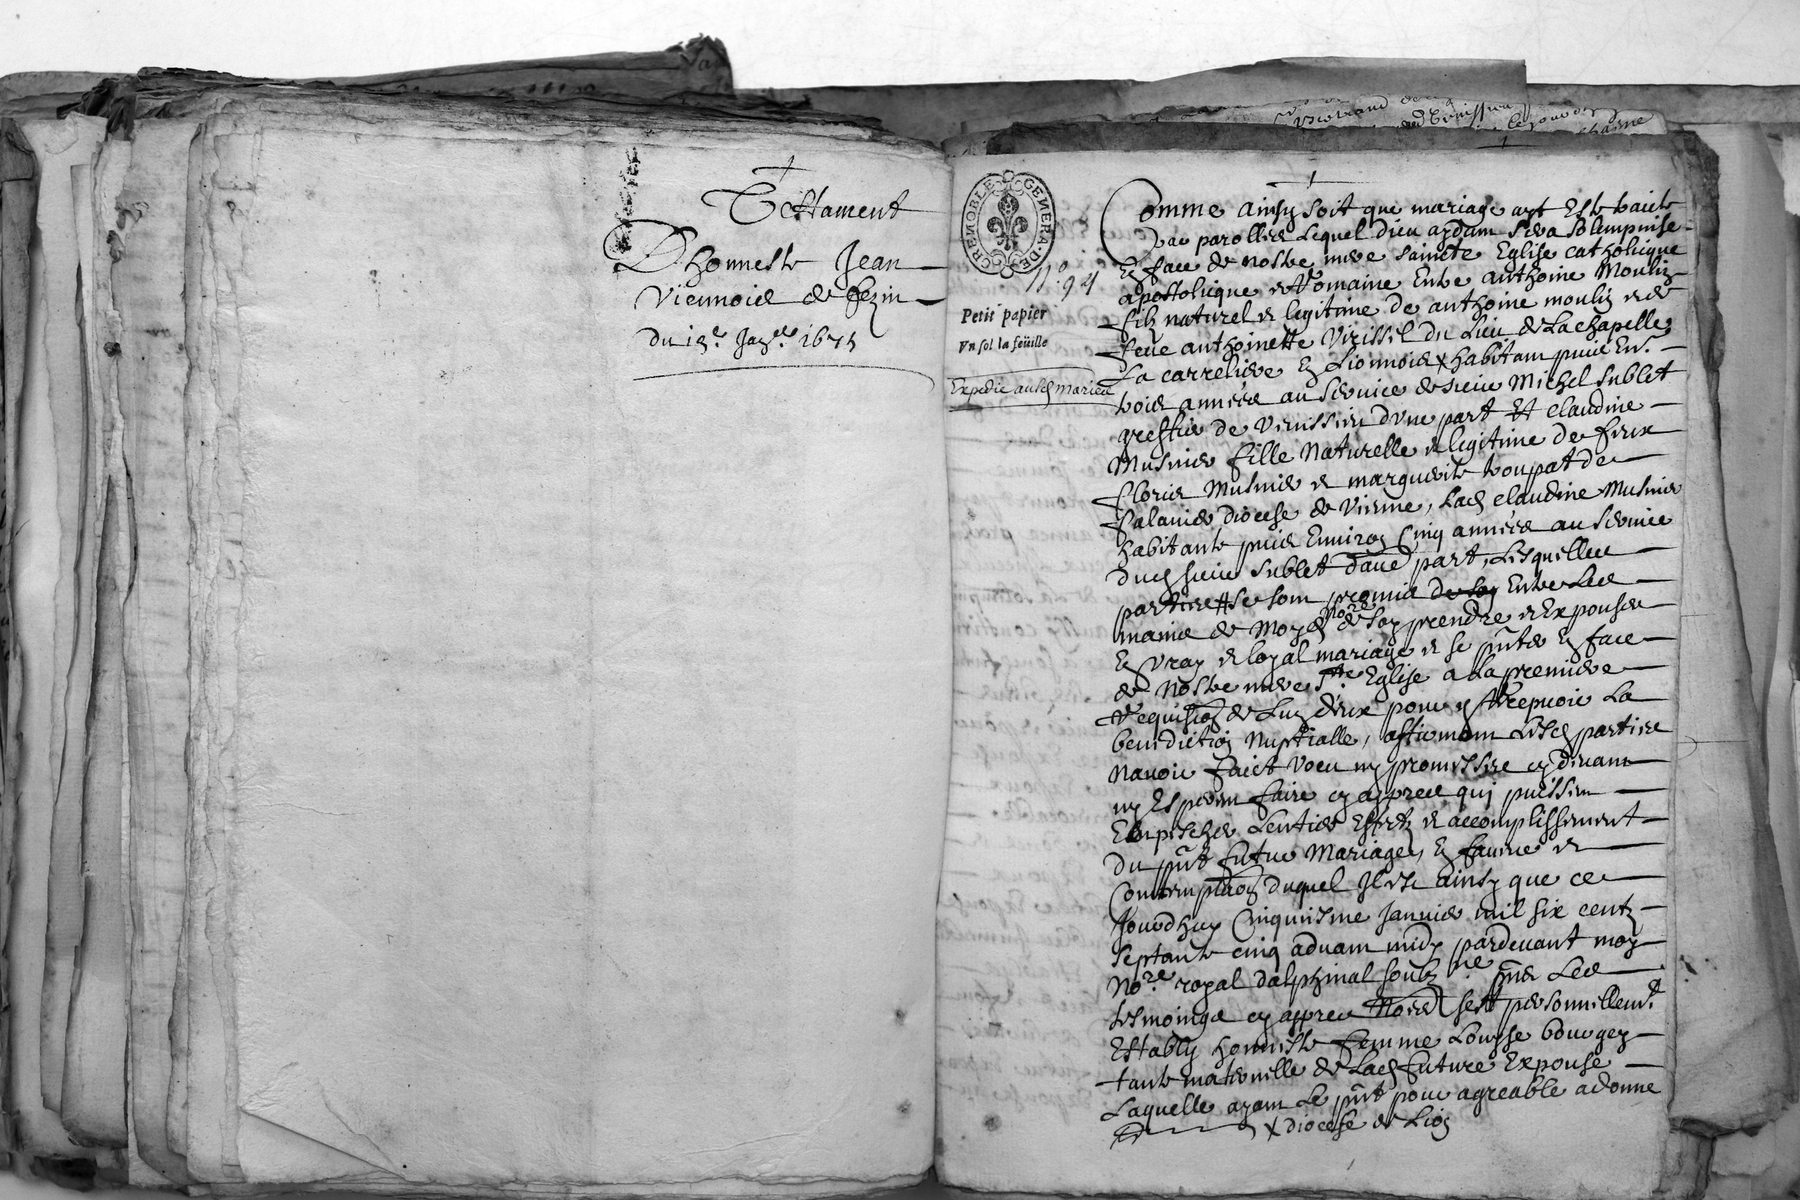 Testament
Dhonneste Jean
Viennois de fezin
du 15e Janer 1675
GRENOBLE GENERA. DE
Petit papier
Vn sol la feüille
Expedie aud marieu
Comme ainsy soit que mariage ayt este traicte
par parolles lequel dieu aydam sera solempnise
En face de nostre mere saincte Eglise catholicque
apostolicque & Romaine Entre anthoine Moulin
filz naturel & legitime de anthoine moulin & de
feue anthoinette du Lieu de La chapelle
En Lionnois x habitam puis En.
trois années au service de sieur Michel sublet
greffier de d'une part Et claudine
Musnier fille Naturelle & legitime de feux
floris Musnier & marguerite
diocese de Vienne, Lad claudine Musnier
habitante puis Environ Cinq années au service
dud sieur sublet d'aue part, Lesquelles
parties se som promis de soy Entre Les
mains de Moyd nore de soy prendre & Expouser
En vray & loyal mariage & se pnter En face
de Nostre mere Ste Eglise a La premiere
Requision de Lun deux pour y Recepuoir La
benediction Nuptialle, Lesd parties
Nauoir faict voeu ny promesses cy deuam
ny Esperem faire cy apres qui puissem
Empescher Lentier Effect & accomplissement
du pnt futur Mariage, En faueur &
Contemplaon duquel Il est ainsy que ce
Jourdhuy Cinquiesme Januier mil six centz
septante cinq aduam midy pardeuant moy
Nore royal dalphinal soubzne pns Les
tesmoings cy apres Noies sest personnellemt
Establi honneste femme Louyse bourgey
tante maternelle de Lad future Expouse
Laquelle ayam Le pnt pour agreable a donne
x diocese de Lion